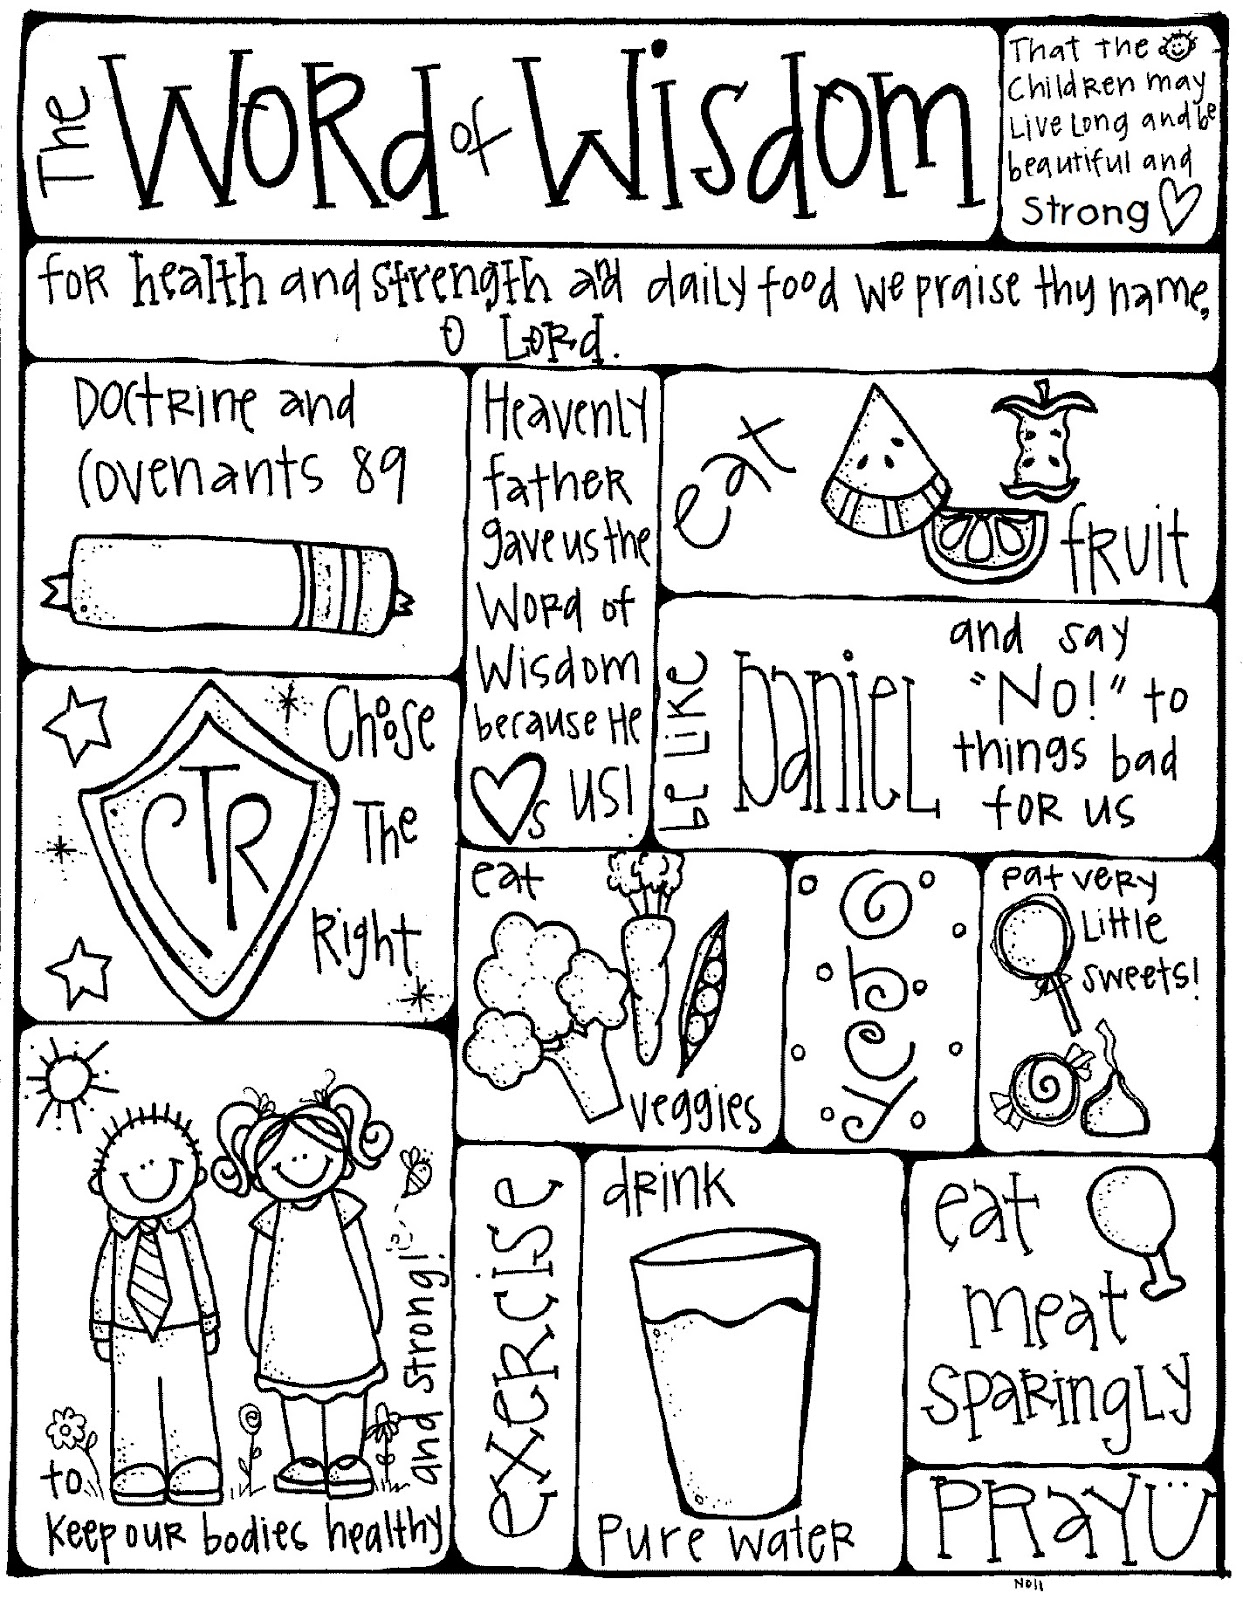 The Word of Wisdom
That the
Children may
Live Long and be
beautiful and
Strong
for health and strength and daily food we praise thy name,
O Lord.
Doctrine and
Covenants 89
Heavenly
father
gave us the
Word of
Wisdom
because He
s us!
eat
fruit
be like
Daniel
and say
"No!" to
things bad
for us
CTR
Choose
The
Right
eat
veggies
yoga
eat very
Little
sweets!
to
keep our bodies healthy
and strong!
exercise
drink
Pure water
eat
meat
sparingly
PRAY
N011